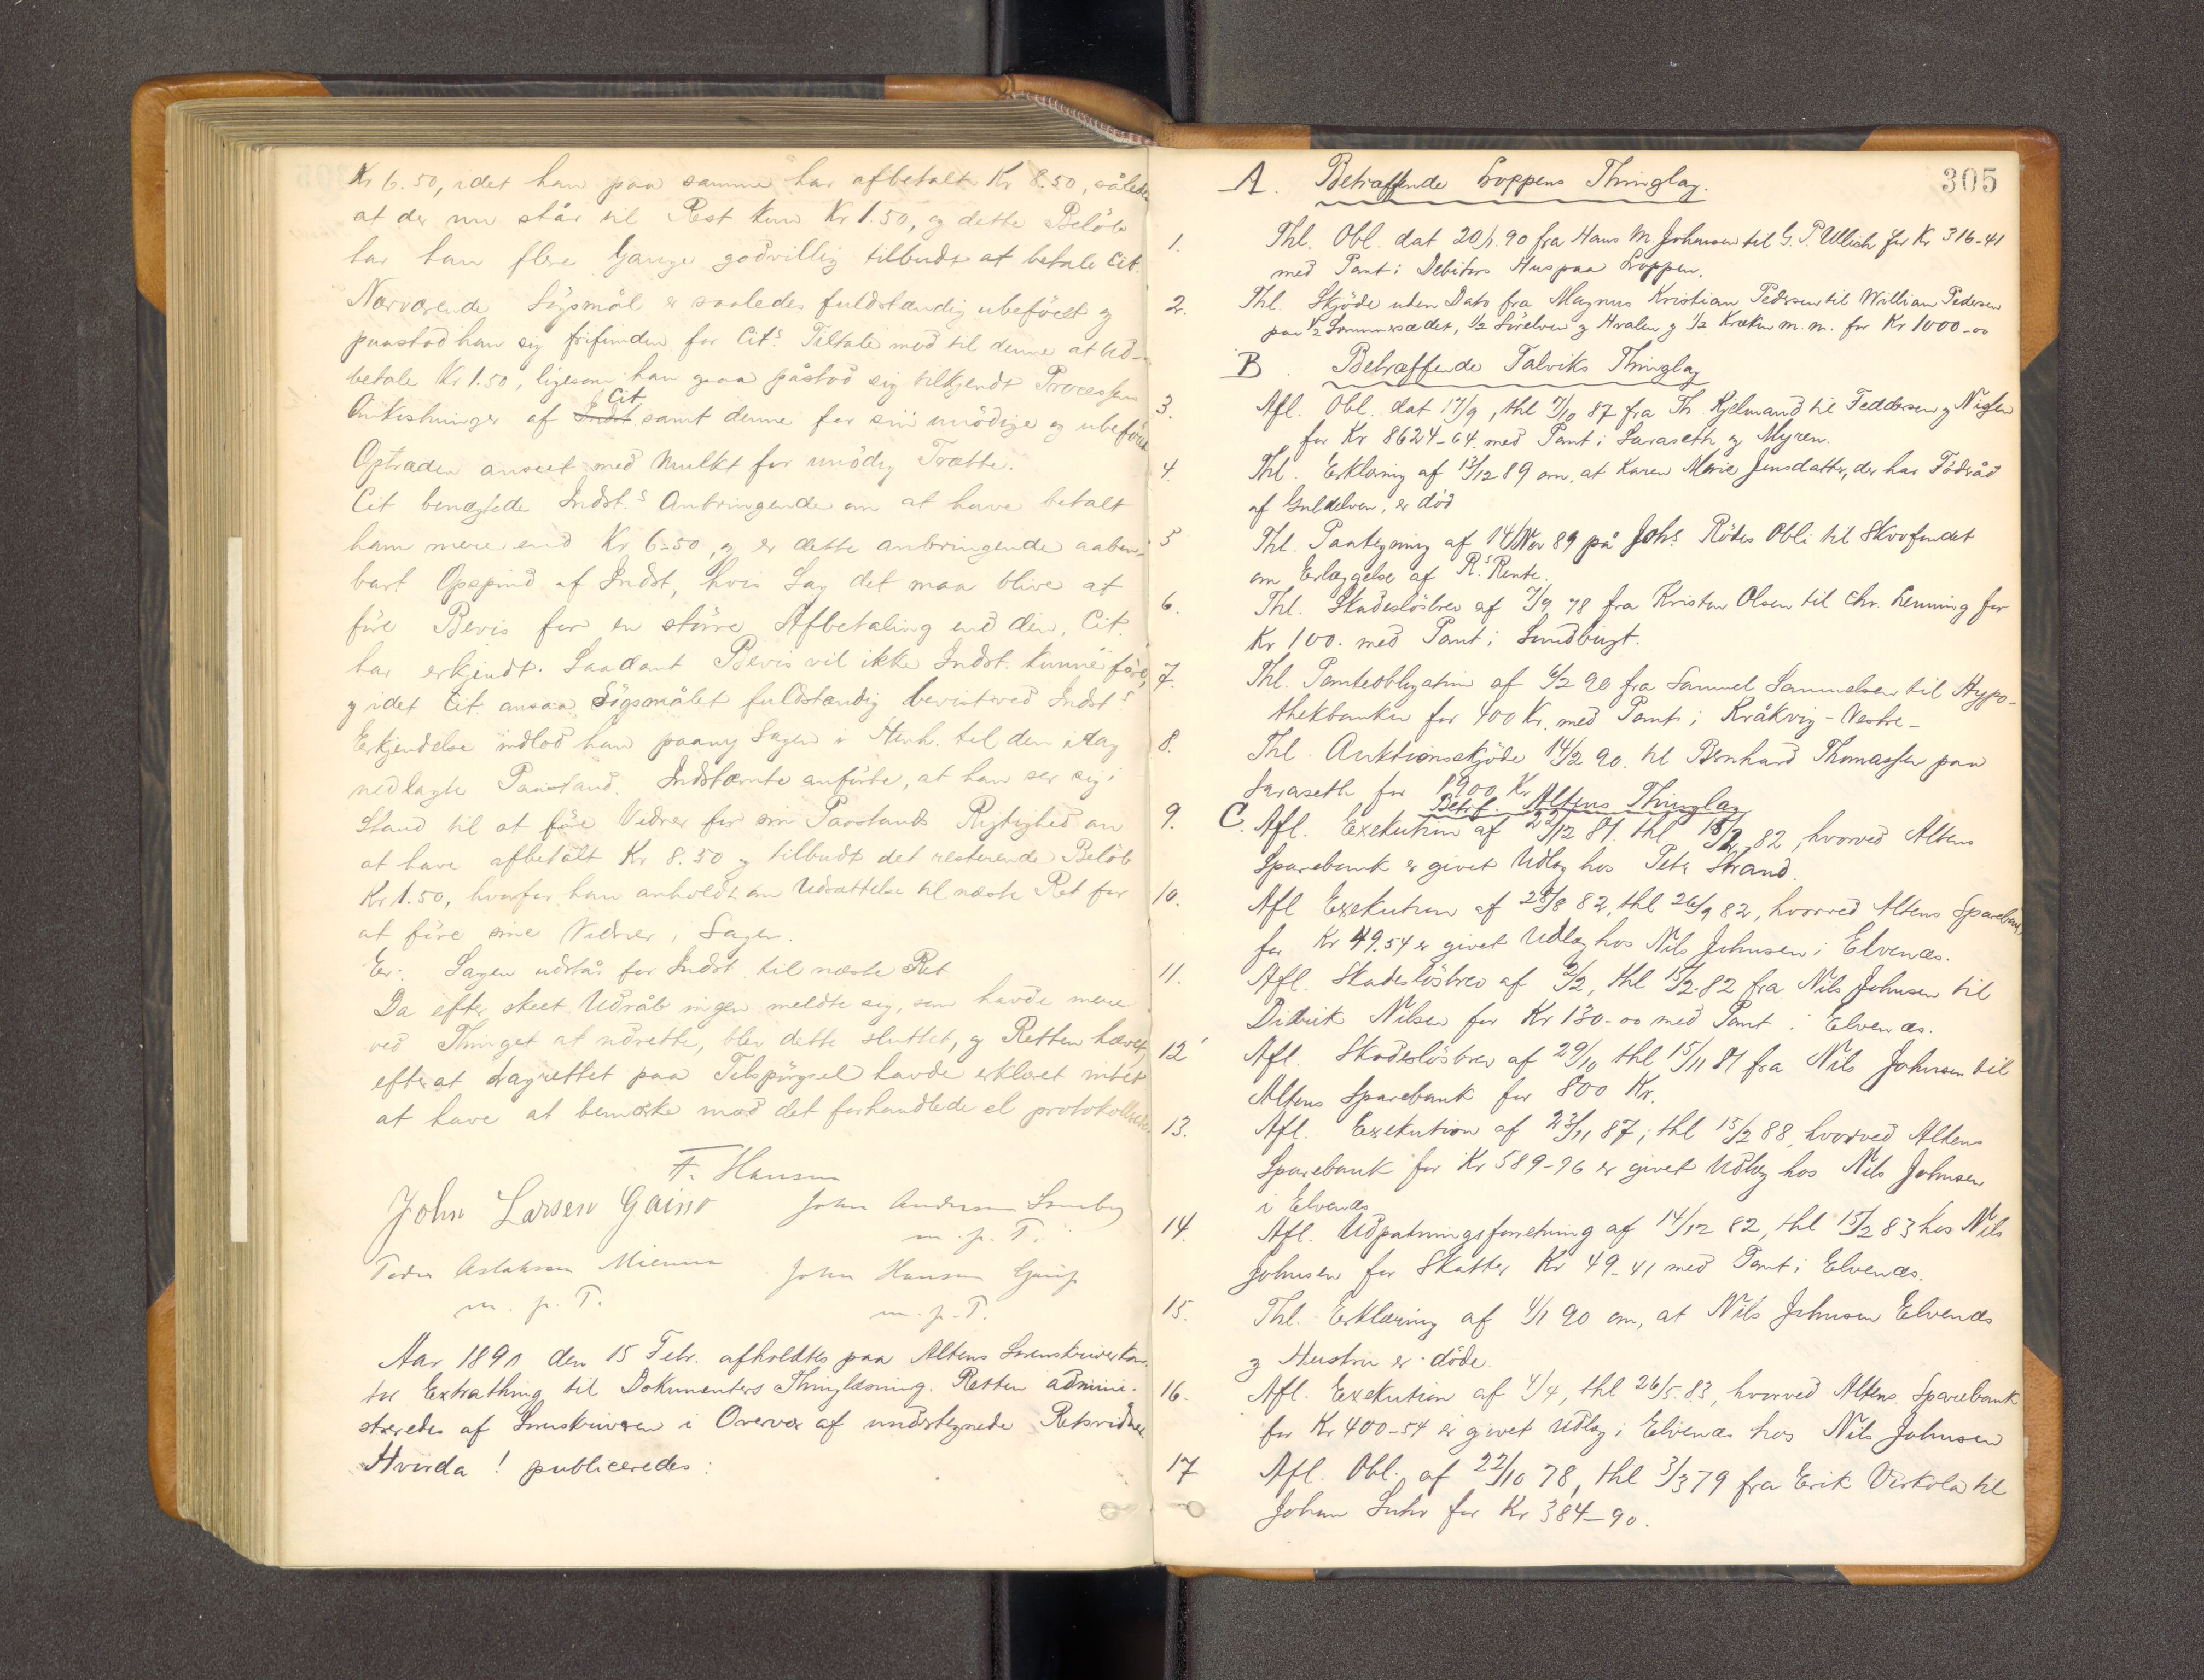 Kr 6.50, idet han paa samme har afbetalt Kr 8.50, således
at der nu står til Rest kun Kr 1.50, og dette Belöb
har han flere Gange godvillig tilbudt at betale Cit.
Nærværende Sögsmål er saaledes fuldstændig ubeföiet og
paastod han sig frifunden for Cits Tiltale mod til denne at ud-
betale Kr 1.50, ligesom han ogsaa påstod sig tilkjendt Processens
Omkostninger af Cit samt denne for sin unödige og ubeföiede
Optræden anseet med Mulkt for unödig Trætte.
Cit benægtede Indst.s Anbringende om at have betalt
ham mere end Kr 6-50, og er dette anbringende aaben-
bart Opspind af Indst, hvis Sag det maa blive at
före Bevis for en större Afbetaling end den, Cit.
har erkjendt. Saadant Bevis vil ikke Indst. kunne före,
og idet Cit. ansaa Sögsmålet fuldstændig bevist ved Indsts
Erkjendelse indlod han paany Sagen i Henh. til den idag
nedlagte Paastand. Indstævnte anförte, at han ser sig i
Stand til at före Vidner for sin Paastands Rigtighed om
at have afbetalt Kr 8.50 og tilbudt det resterende Belöb
Kr 1.50, hvorfor han anholdt om Udsættelse til næste Ret for
at före sine Vidner i Sagen.
Er: Sagen udstår for Indst. til næste Ret
Da efter skeet Udråb ingen meldte sig, som havde mere
ved Thinget at udrette, blev dette sluttet, og Retten hævet,
efterat Lagrettet paa Tilspörgsel havde erklæret intet
at have at bemærke med det forhandlede el protokollerede
F. Hansen
John Larsen Gaino John Andersen
m. p. T.
Peder Aslaksen Mienna John Hansen
m. p. T. m. p. T.
Aar 1890 den 15 Febr. afholdtes paa Altens Sorenskriverkon-
tor Extrathing til Dokumenters Thinglæsning. Retten admini-
streredes af Sorenskriveren i Overvær af undertegnede Retsvidner
Hvorda! publiceredes:
305
A. Betræffende Loppens Thinglag.
1. Thl. Obl. dat 20/1. 90 fra Hans M. Johansen til G. P. Ullich for Kr 316-41
med Pant i Debitors Hus paa Loppen.
2. Thl. Skjöde uden Dato fra Magnus Kristian Pedersen til William Pedersen
paa 1/2 Sommersædet, 1/2 Sörelven og Hvalen og 1/2 Kræken m. m. for Kr 1000-00
B. Betræffende Talviks Thinglag
3. Afl. Obl. dat 17/9, thl 7/10 87 fra Th. Kjelmand til Feddersen og Nissen
for Kr 8624-64 med Pant i Saraseth og Myren.
4. Thl. Erklæring af 13/12 89 om, at Karen Marie Jensdatter, der har Födråd
af Guldelven, er död
5 Thl. Pantegning af 14/Nov 89 på Johs. Rödes Obli til Skovfondet
om Erlæggelse af R.s Rente.
6. Thl. Skadeslösbrev af 7/9 78 fra Kristen Olsen til Chr. Lenning for
Kr 100. med Pant i Sundbugt.
7. Thl. Panteobligation af 6/2 90 fra Samuel Samuelsen til Hypo-
thekbanken for 400 Kr. med Pant i Kråkvig-Vestre-
8. Thl. Auktionsskjöde 14/2 90. til Bernhard Thomassen paa
Saraseth for 1900 Kr
C. Betrf. Altens Thinglag
9. Afl. Exekution af 22/12 81. thl 15/2 82, hvorved Altens
Sparebank er givet Udlæg hos Peter Strand.
10. Afl Exekution af 28/8 82, thl 26/9 82, hvorved Altens Sparebank,
for Kr 49.54 er givet Udlæg hos Nils Johnsen i Elvenæs.
11. Afl. Skadeslösbrev af 2/2, thl 15/2.82 fra Nils Johnsen til
Didrik Nilsen for Kr 130-00 med Pant i Elvenæs.
12 Afl. Skadeslösbrev af 29/10 thl 15/11 81 fra Nils Johnsen til
Altens Sparebank for 800 Kr.
13. Afl. Exekution af 23/11 87, thl 15/2 88, hvorved Altens
Sparebank for Kr 589-96 er givet Udlæg hos Nils Johnsen
i Elvenæs
14. Afl. Udpatningsforretning af 14/12 82, thl 15/2 83 hos Nils
Johnsen for Skatter Kr 49-41 med Pant i Elvenæs.
15. Thl. Erklæring af 4/1 90 om, at Nils Johnsen Elvenæs
og Hustru er döde.
16. Afl. Exekution af 4/4, thl 26/5.83, hvorved Altens Sparebank
for Kr 400-54 er givet Udlæg i Elvenæs hos Nils Johnsen
17 Afl. Obl. af 22/10 78, thl 3/3 79 fra Erik Virkola til
Johan Suhr for Kr 384-90.